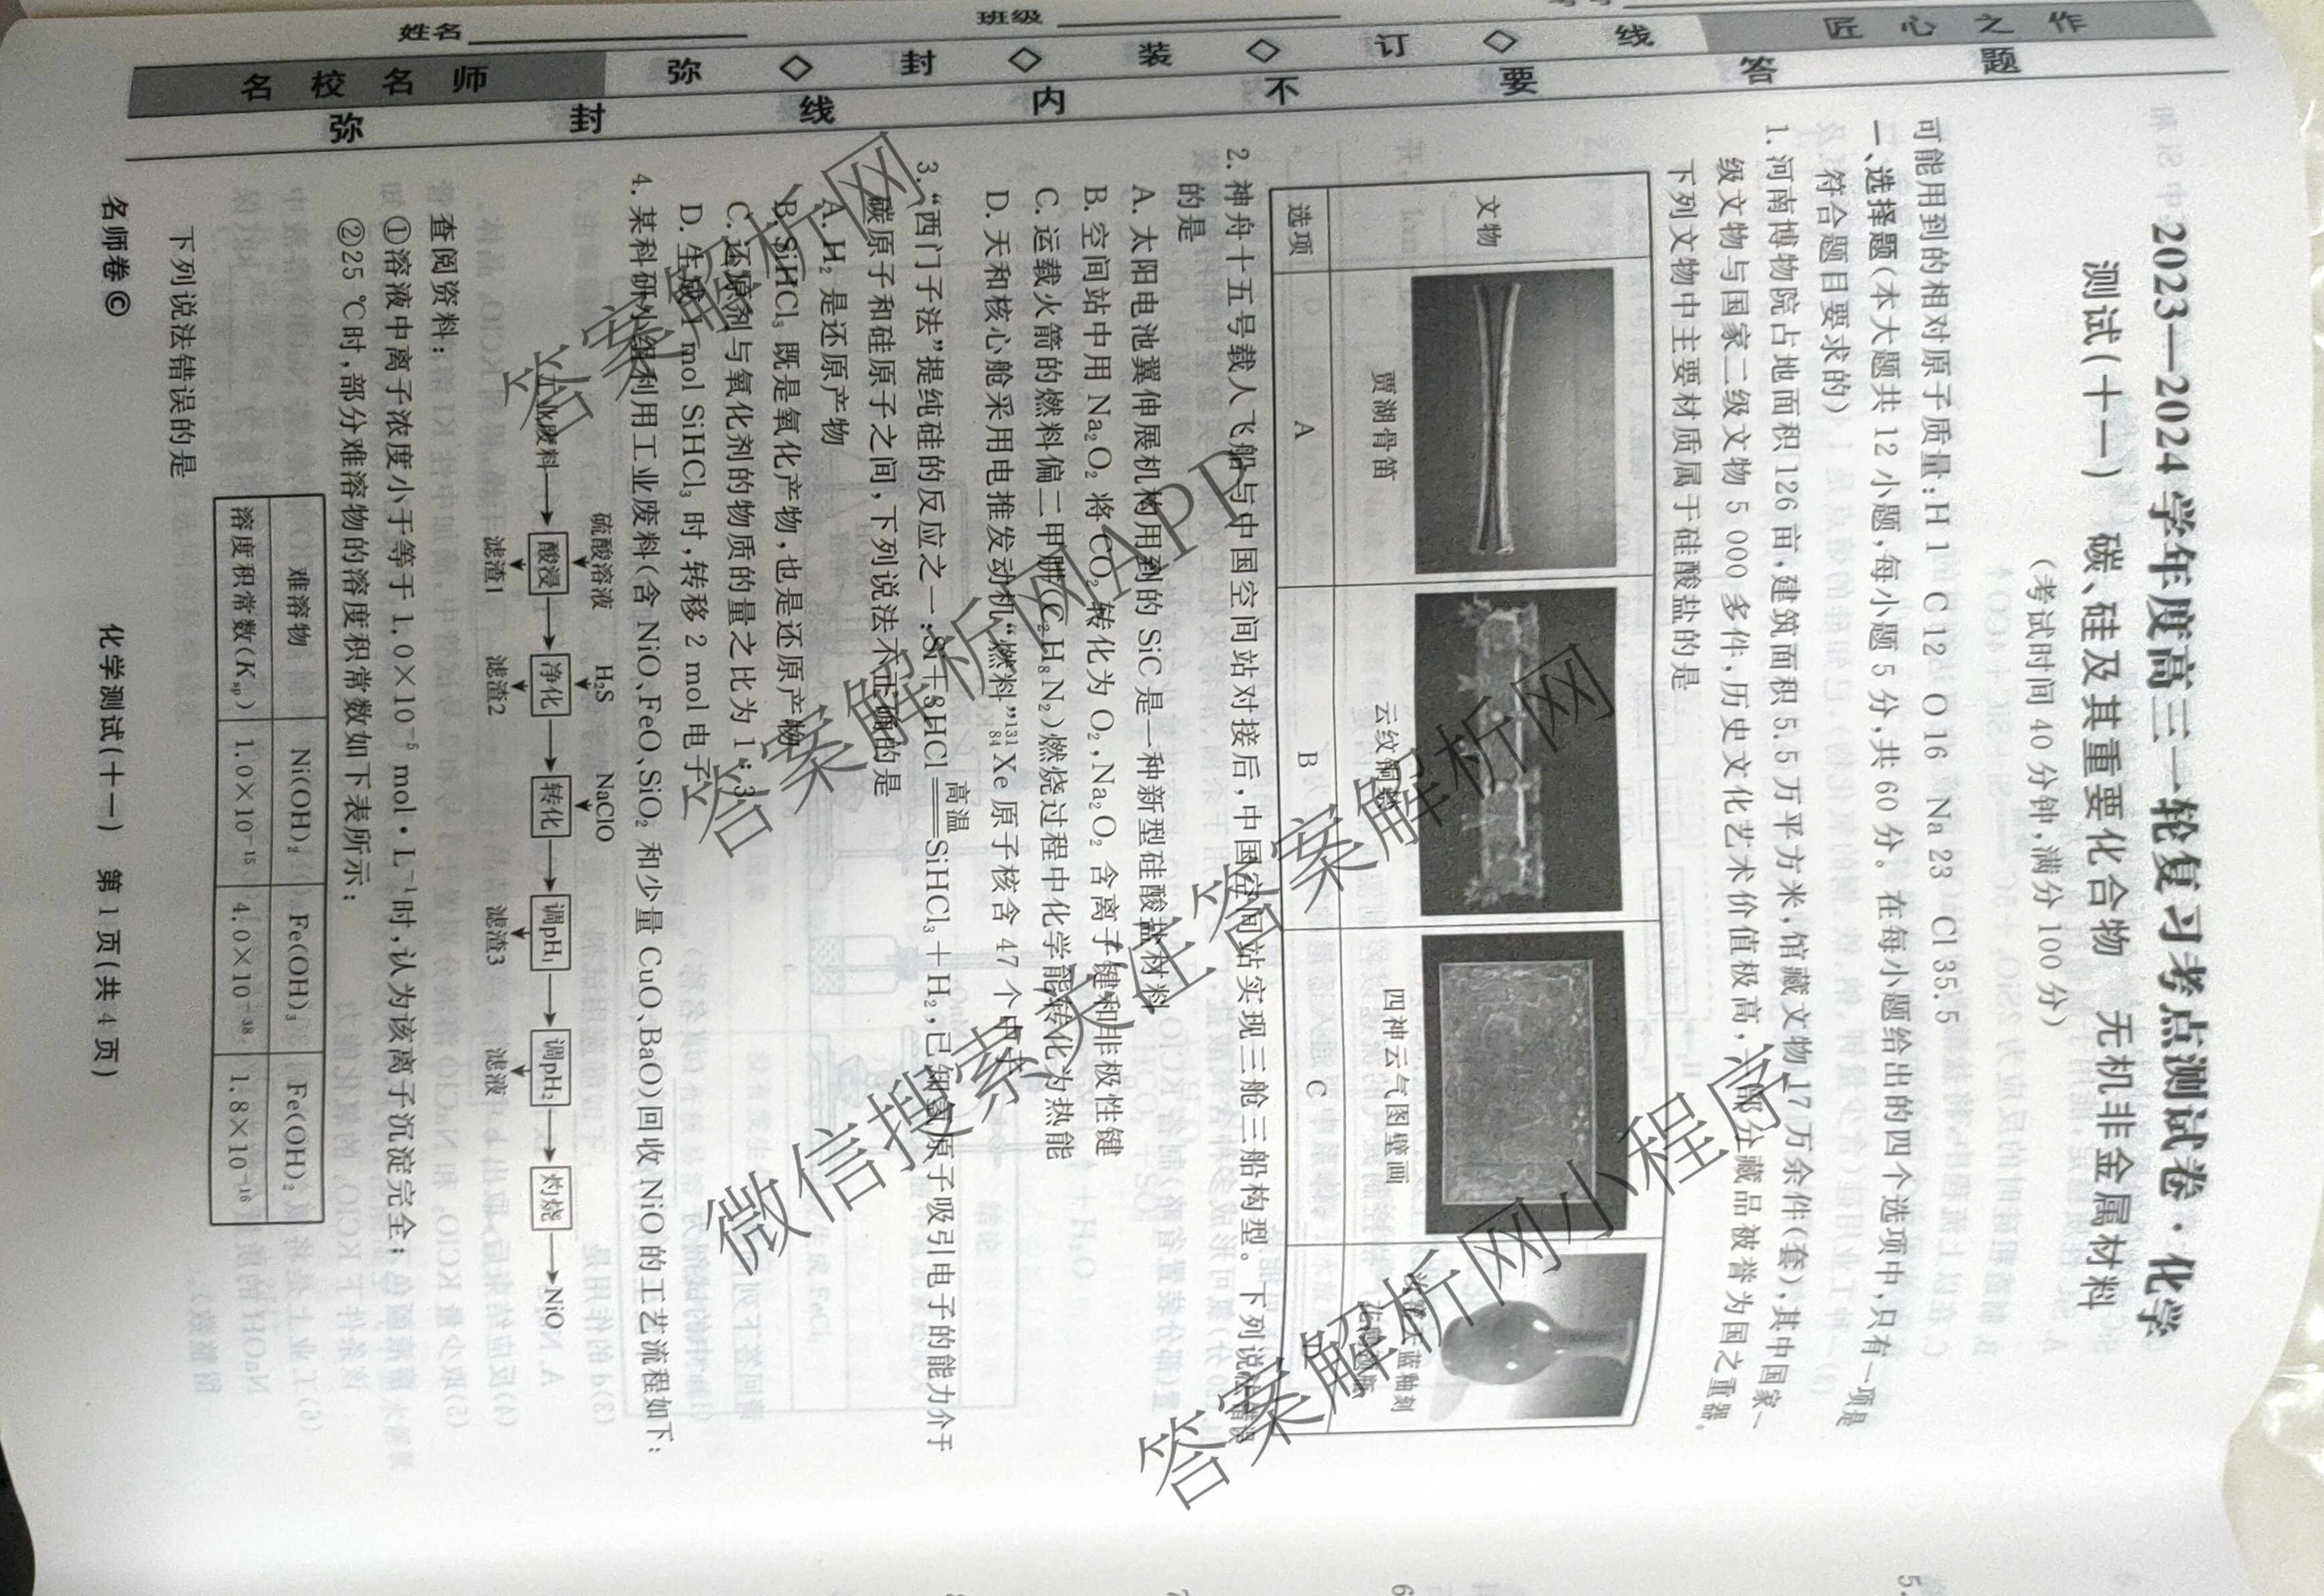 姓名
班级
匠心之作
名校名师
弥◇封◇装◇订◇线
弥封线内不要答题
2023—2024学年度高三一轮复习考点测试卷·化学
测试(十一) 碳、硅及其重要化合物 无机非金属材料
(考试时间40分钟,满分100分)
可能用到的相对原子质量:H 1 C 12 O 16 Na 23 Cl 35.5
一、选择题(本大题共12小题,每小题5分,共60分。在每小题给出的四个选项中,只有一项是
符合题目要求的)
1. 河南博物院占地面积126亩,建筑面积5.5万平方米,馆藏文物17万余件(套),其中国家一
级文物与国家二级文物5 000多件,历史文化艺术价值极高,一部分藏品被誉为国之重器。
下列文物中主要材质属于硅酸盐的是
文物
贾湖骨笛
云纹铜禁
四神云气图壁画
天蓝釉刻
选项 A B C
2. 神舟十五号载人飞船与中国空间站对接后,中国空间站实现三舱三船构型。下列说法错误
的是
A. 太阳电池翼伸展机构用到的SiC是一种新型硅酸盐材料
B. 空间站中用Na₂O₂将CO₂转化为O₂,Na₂O₂含离子键和非极性键
C. 运载火箭的燃料偏二甲肼(C₂H₈N₂)燃烧过程中化学能转化为热能
D. 天和核心舱采用电推发动机“燃料”¹³¹₈₄Xe原子核含47个中子
3. “西门子法”提纯硅的反应之一:Si+3HCl高温═SiHCl₃+H₂,已知氢原子吸引电子的能力介于
碳原子和硅原子之间,下列说法不正确的是
A. H₂是还原产物
B. SiHCl₃既是氧化产物,也是还原产物
C. 还原剂与氧化剂的物质的量之比为1∶3
D. 生成1 mol SiHCl₃时,转移2 mol电子
4. 某科研小组利用工业废料(含NiO、FeO、SiO₂和少量CuO、BaO)回收NiO的工艺流程如下:
硫酸溶液 H₂S NaClO
工业废料→酸浸→净化→转化→调pH₁→调pH₂→灼烧→NiO
滤渣1 滤渣2 滤渣3 滤液
查阅资料:
①溶液中离子浓度小于等于1.0×10⁻⁵ mol·L⁻¹时,认为该离子沉淀完全;
②25 ℃时,部分难溶物的溶度积常数如下表所示:
难溶物 Ni(OH)₂ Fe(OH)₃ Fe(OH)₂
溶度积常数(Ksp) 1.0×10⁻¹⁵ 4.0×10⁻³⁸ 1.8×10⁻¹⁶
下列说法错误的是
名师卷© 化学测试(十一) 第1页(共4页)
答案解析网
答案解析网APP
微信搜索关注答案解析网
答案解析网小程序